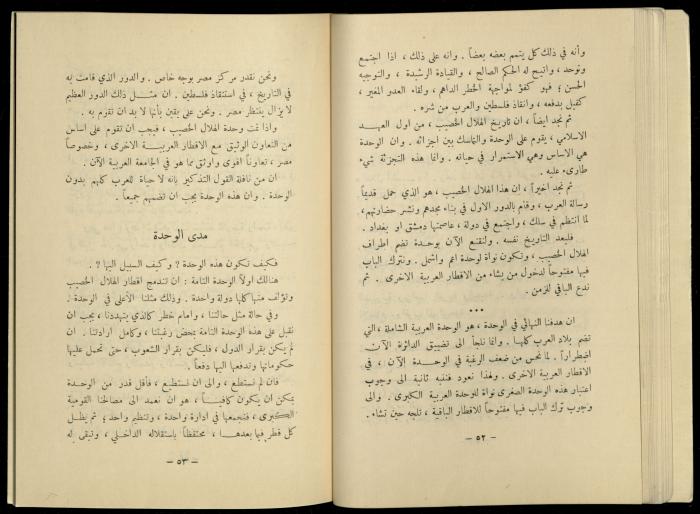 وأنه في ذلك كل يتمم بعضه بعضاً . وانه على ذلك ، اذا اجتمع
وتوحد ، واتيح له الحكم الصالح ، والقيادة الرشيدة ، والتوجيه
الحسن ؛ فهو كفؤ لمواجهة الخطر الداهم ، ولقاء العدو المغير ،
كفيل بدفعه ، وانقاذ فلسطين والعرب من شره .
ثم نجد ايضاً ، ان تاريخ الهلال الخصيب ، من اول العهد
الاسلامي ، يقوم على الوحدة والتماسك بين اجزائه . وان الوحدة
هي الاساس وهي الاستمرار في حياته . وانما هذه التجزئة شيء
طارىء عليه .
ثم نجد اخيراً ، ان هذا الهلال الخصيب ، هو الذي حمل قديماً
رسالة العرب ، وقام بالدور الاول في بناء مجدهم ونشر حضارتهم ،
لما انتظم في سلك ، واجتمع في دولة ، عاصمتها دمشق او بغداد .
فليعد التاريخ نفسه . ولنقنع الآن بوحدة تضم اطراف
الهلال الخصيب ، وتكون نواة لوحدة اعم واشمل . ونترك الباب
فيها مفتوحاً لدخول من يشاء من الاقطار العربية الاخرى . ثم
ندع الباقي للزمن .
٠٠٠
ان هدفنا النهائي في الوحدة ، هو الوحدة العربية الشاملة ، التي
تضم بلاد العرب كلها . وانما نلجأ الى تضييق الدائرة الآن
اضطراراً . لما نحس من ضعف الرغبة في الوحدة الآن ، في
الاقطار العربية الاخرى . ولهذا نعود فننبه ثانية الى وجوب
اعتبار هذه الوحدة الصغرى نواة للوحدة العربية الكبرى . والى
وجوب ترك الباب فيها مفتوحاً للاقطار الباقية ، تلجه حين تشاء .
— ٥٢ —
ونحن نقدر مركز مصر بوجه خاص . والدور الذي قامت به
في التاريخ ، في استنقاذ فلسطين . ان مثل ذلك الدور العظيم
لا يزال ينتظر مصر . ونحن على يقين بأنها لا بد ان تقوم به .
واذا تمت وحدة الهلال الخصيب ، فيجب ان تقوم على اساس
من التعاون الوثيق مع الاقطار العربية الاخرى ، وخصوصاً
مصر ، تعاوناً اقوى واوثق مما هو في الجامعة العربية الآن .
ان من نافلة القول التذكير بانه لا حياة للعرب كلهم بدون
الوحدة . وان هذه الوحدة يجب ان تضمهم جميعاً .
مدى الوحدة
فكيف تكون هذه الوحدة ? وكيف السبيل اليها ? .
هنالك اولاً الوحدة التامة : ان تندمج اقطار الهلال الخصيب
وتؤلف منها كلها دولة واحدة . وذلك مثلنا الأعلى في الوحدة .
وفي حالة مثل حالتنا ، وامام خطر كالذي يتهددنا ، يجب ان
نقبل على هذه الوحدة التامة بمحض رغبتنا ، وكامل ارادتنا . ان
لم يكن بقرار الدول ، فليكن بقرار الشعوب ، حتى تحمل عليها
حكوماتها وتدفعها اليها دفعاً .
فان لم نستطع ، والى ان نستطيع ، فأقل قدر من الوحدة
يمكن ان يكون كافياً ، هو ان نعمد الى مصالحنا القومية
الكبرى ، فنجمعها في ادارة واحدة ، وتنظيم واحد ؛ ثم يظل
كل قطر فيها بعدها ، محتفظاً باستقلاله الداخلي ، وتبقى له
— ٥٣ —